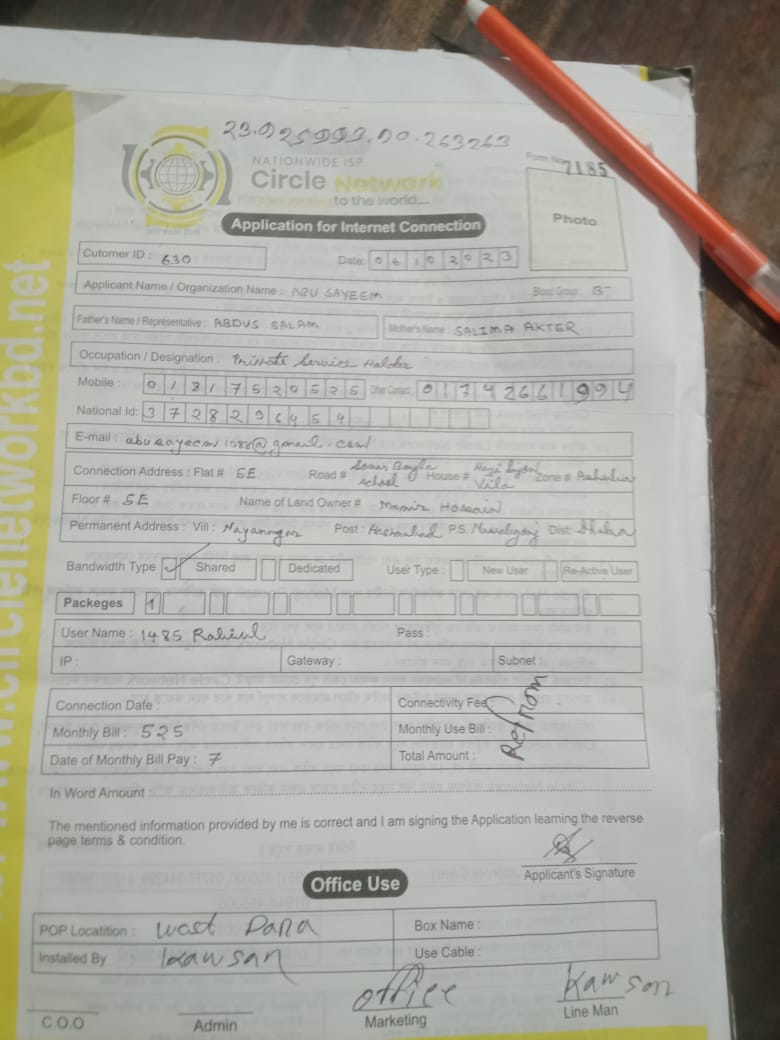 23.925993,90.263263
NATIONWIDE ISP
Circle Network
to the world....
Form No. 7185
Application for Internet Connection
Photo
Cutomer ID : 630
Date: 06 10 2023
Applicant Name / Organization Name : ABU SAYEEM Blood Group : B+
Father's Name / Representative : ABDUS SALAM Mother's Name : SALIMA AKTER
Occupation / Designation : Private Service Holder
Mobile : 01817520525 Other Contact : 01742661994
National Id: 3728296454
E-mail : abusayeem1088@gmail.com
Connection Address : Flat # 5E Road # Sonar Bangla School House # Vila Zone # Ashulia
Floor # 5E Name of Land Owner # Hossain
Permanent Address : Vill : Nayanagar Post : P.S. Nawabganj Dist: Dhaka
Bandwidth Type Shared Dedicated User Type : New User Re-Active User
Packeges 1
User Name : 1485 Rabiul Pass :
IP : Gateway : Subnet :
Connection Date : Connectivity Fee :
Monthly Bill : 525 Monthly Use Bill :
Date of Monthly Bill Pay : 7 Total Amount :
In Word Amount :
The mentioned information provided by me is correct and I am signing the Application learning the reverse
page terms & condition.
Applicant's Signature
Office Use
POP Locatition : West Para Box Name :
Installed By Kawsan Use Cable :
office Kawson
C.O.O Admin Marketing Line Man
www.circlenetworkbd.net